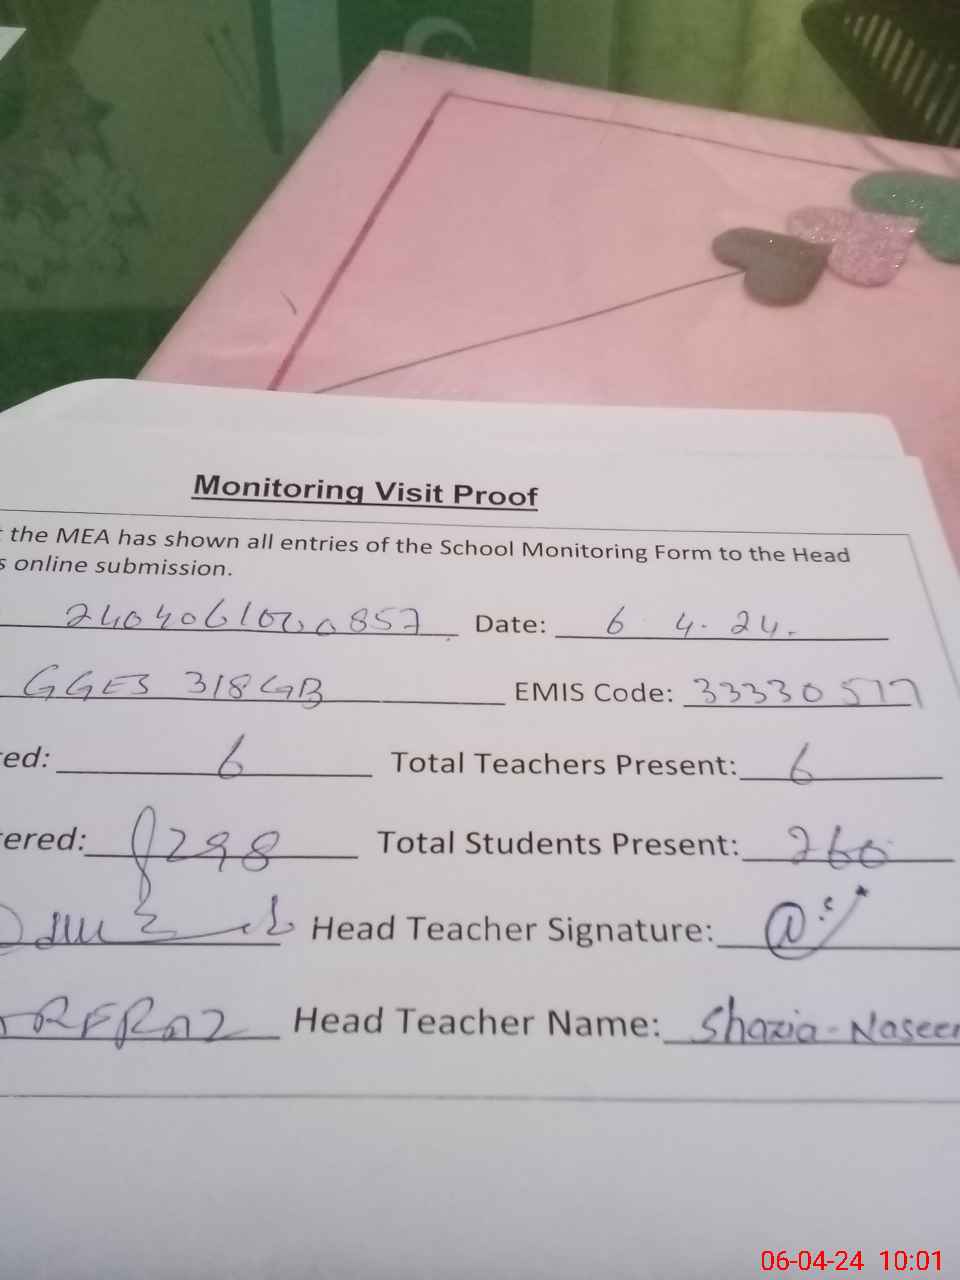 Monitoring Visit Proof
the MEA has shown all entries of the School Monitoring Form to the Head
s online submission.
Date: 6 4. 24.
GGES 318 GB EMIS Code: 33330577
ed: 6 Total Teachers Present: 6
ered: 298 Total Students Present: 260
Head Teacher Signature:
Head Teacher Name: Shazia-Naseer
06-04-24 10:01